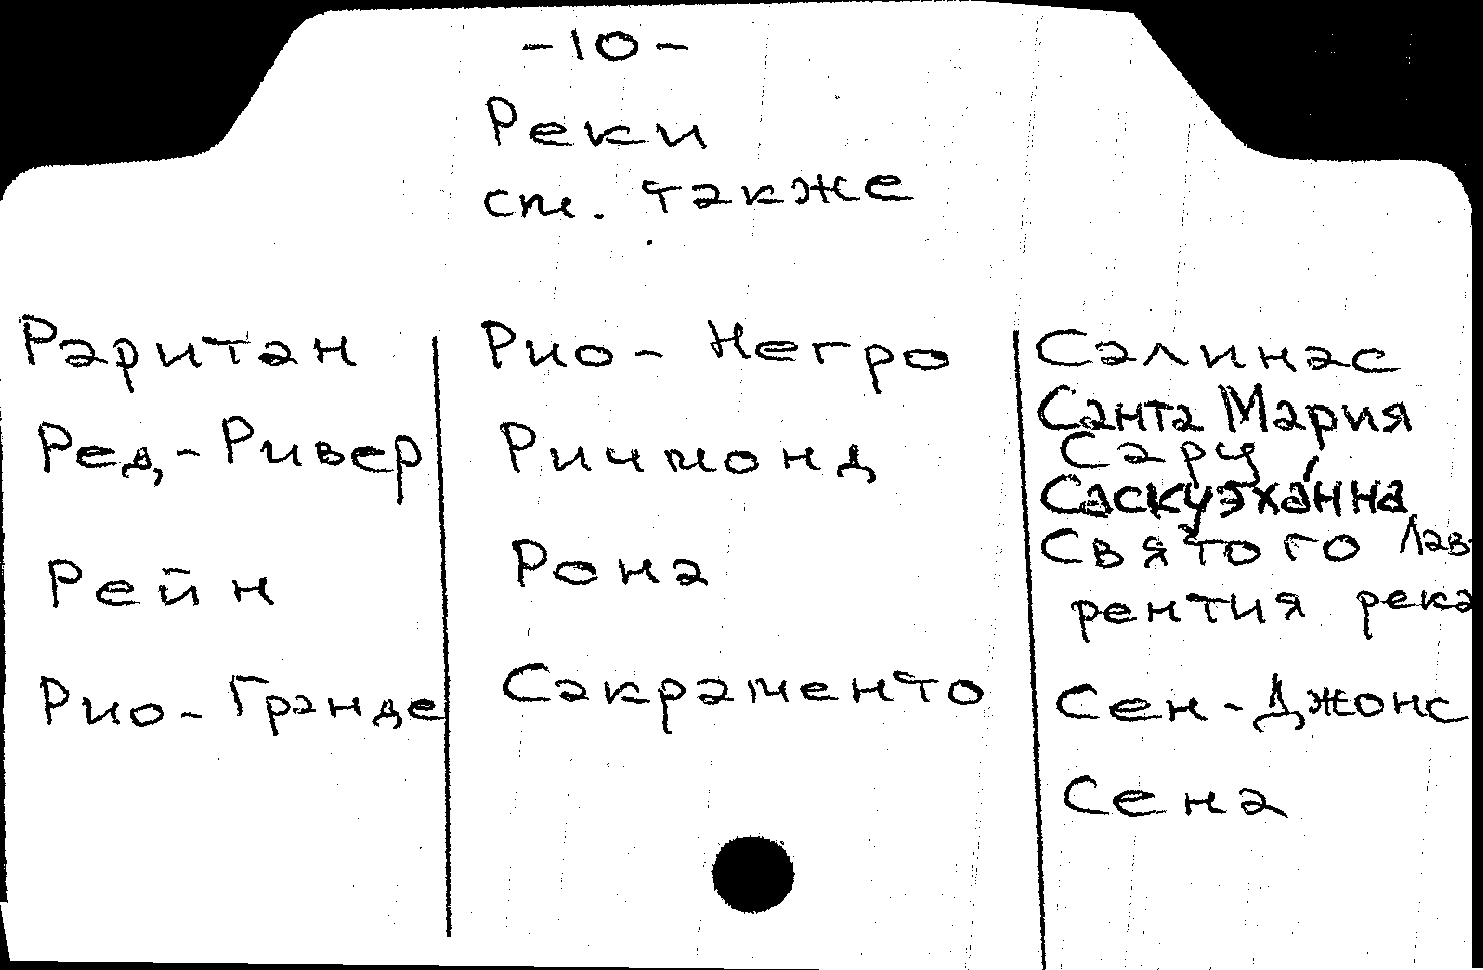 -10-
Реки
см. также
Раритан
Ред-Ривер
Рейн
Рио-Гранде
Рио-Негро
Ричмонд
Рона
Сакраменто
Салинас
Санта Мария
Сару
Саскуэха́нна
Святого Лав-
рентия река
Сен-Джонс
Сена